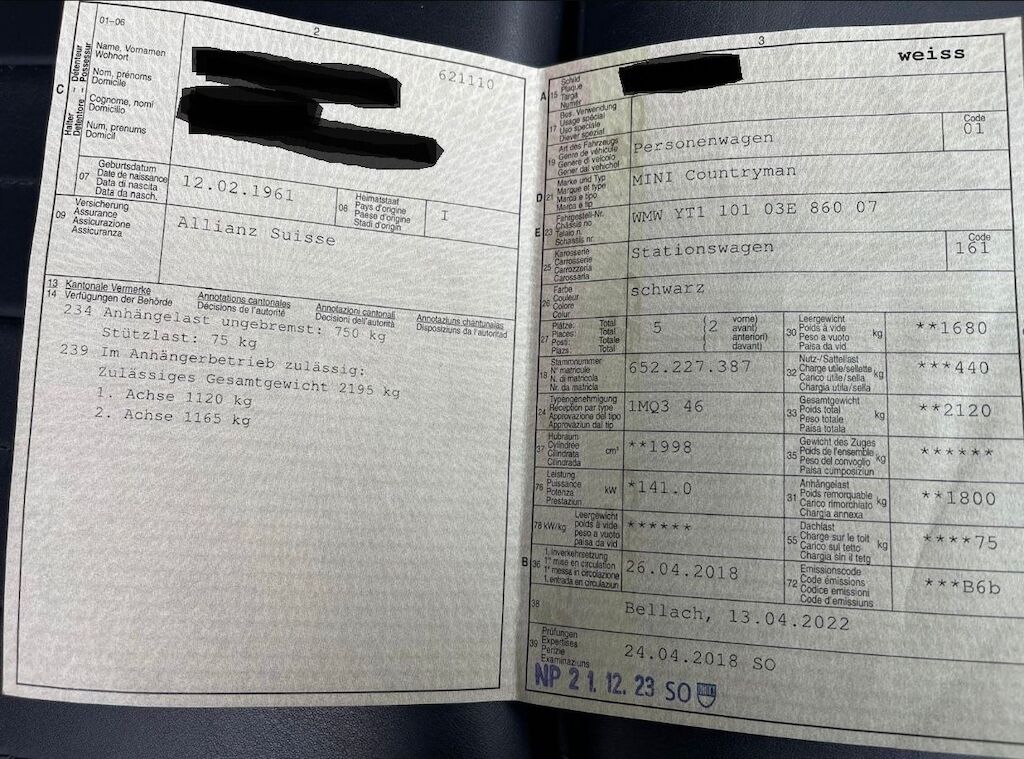 01-06
2
C
Halter Détenteur
Detentore Possessur
Name, Vornamen
Wohnort
Nom, prénoms
Domicile
Cognome, nomi
Domicilio
Num, prenums
Domicil
621110
07
Geburtsdatum
Date de naissance
Data di nascita
Data da nasch.
12.02.1961
08
Heimatstaat
Pays d'origine
Paese d'origine
Stadi d'origin
I
09
Versicherung
Assurance
Assicurazione
Assicuranza
Allianz Suisse
13 Kantonale Vermerke Annotations cantonales Annotazioni cantonali Annotaziuns chantunalas
14 Verfügungen der Behörde Décisions de l'autorité Decisioni dell'autorità Disposiziuns da l'autoritad
234 Anhängelast ungebremst: 750 kg
Stützlast: 75 kg
239 Im Anhängerbetrieb zulässig:
Zulässiges Gesamtgewicht 2195 kg
1. Achse 1120 kg
2. Achse 1165 kg
3
weiss
A 15
Schild
Plaque
Targa
Numer
17
Bes. Verwendung
Usage spécial
Uso speciale
Diever spezial
19
Art des Fahrzeugs
Genre de véhicule
Genere di veicolo
Gener dal vehichel
Personenwagen
Code
01
D 21
Marke und Typ
Marque et type
Marca e tipo
Marca e tip
MINI Countryman
E 23
Fahrgestell-Nr.
Châssis no
Telaio n.
Schassis nr.
WMW YT1 101 03E 860 07
25
Karosserie
Carrosserie
Carrozzeria
Carossaria
Stationswagen
Code
161
26
Farbe
Couleur
Colore
Colur
schwarz
27
Plätze: Total
Places: Total
Posti: Totale
Plazs: Total
5
(2
vorne)
( avant)
( anteriori)
( davant)
30
Leergewicht
Poids à vide
Peso a vuoto
Paisa da vid
kg
**1680
18
Stammnummer
N° matricule
N. di matricola
Nr. da matricla
652.227.387
32
Nutz-/Sattellast
Charge utile/sellette
Carico utile/sella
Chargia utila/sella
kg
***440
24
Typengenehmigung
Réception par type
Approvazione del tipo
Approvaziun dal tip
1MQ3 46
33
Gesamtgewicht
Poids total
Peso totale
Paisa totala
kg
**2120
37
Hubraum
Cylindrée
Cilindrata
Cilindrada
cm³
**1998
35
Gewicht des Zuges
Poids de l'ensemble
Peso del convoglio
Paisa cumposiziun
kg
******
76
Leistung
Puissance
Potenza
Prestaziun
kW
*141.0
31
Anhängelast
Poids remorquable
Carico rimorchiato
Chargia annexa
kg
**1800
78 kW/kg
Leergewicht
poids à vide
peso a vuoto
paisa da vid
******
55
Dachlast
Charge sur le toit
Carico sul tetto
Chargia sin il tetg
kg
****75
B 36
1. Inverkehrsetzung
1re mise en circulation
1a messa in circolazione
1. entrada en circulaziun
26.04.2018
72
Emissionscode
Code émissions
Codice emissioni
Code d'emissiuns
***B6b
38
Bellach, 13.04.2022
39
Prüfungen
Expertises
Perizie
Examinaziuns
24.04.2018 SO
NP 21.12.23 SO